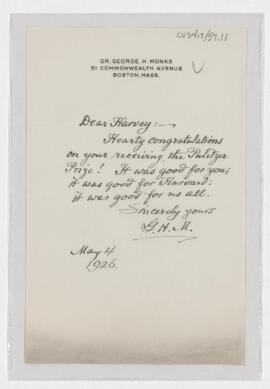 CUS417/59.11
DR. GEORGE H. MONKS
51 COMMONWEALTH AVENUE
BOSTON, MASS.
Dear Harvey:—
Hearty congratulations
on your receiving the Pulitzer
Prize! It was good for you;
it was good for Harvard;
it was good for us all.
Sincerely yours
G.H.M.
May 4
1926.